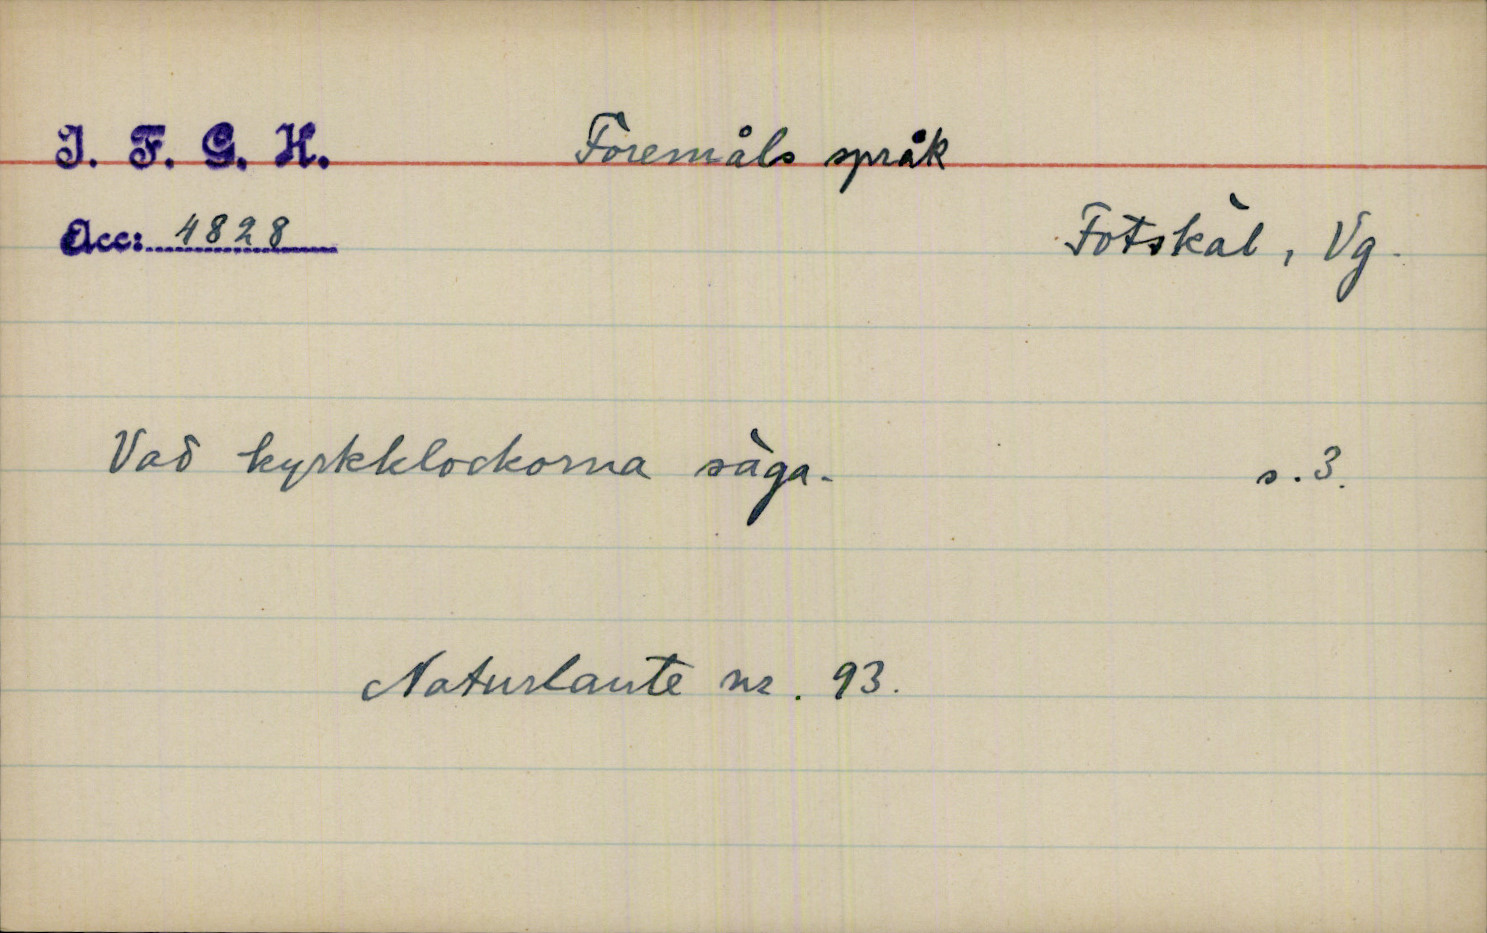 I. F. G. H.
Föremåls språk
Acc: 4828
Fotskäl, Vg.
Vad kyrkklockorna säga.
s. 3.
Naturlaute nr. 93.